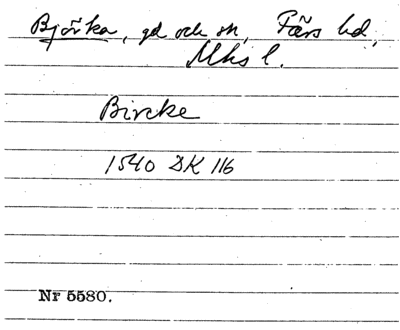 Björka, gd och sn, Färs hd,
Mhs l.
Bircke
1540 DK 116
Nr 5580.